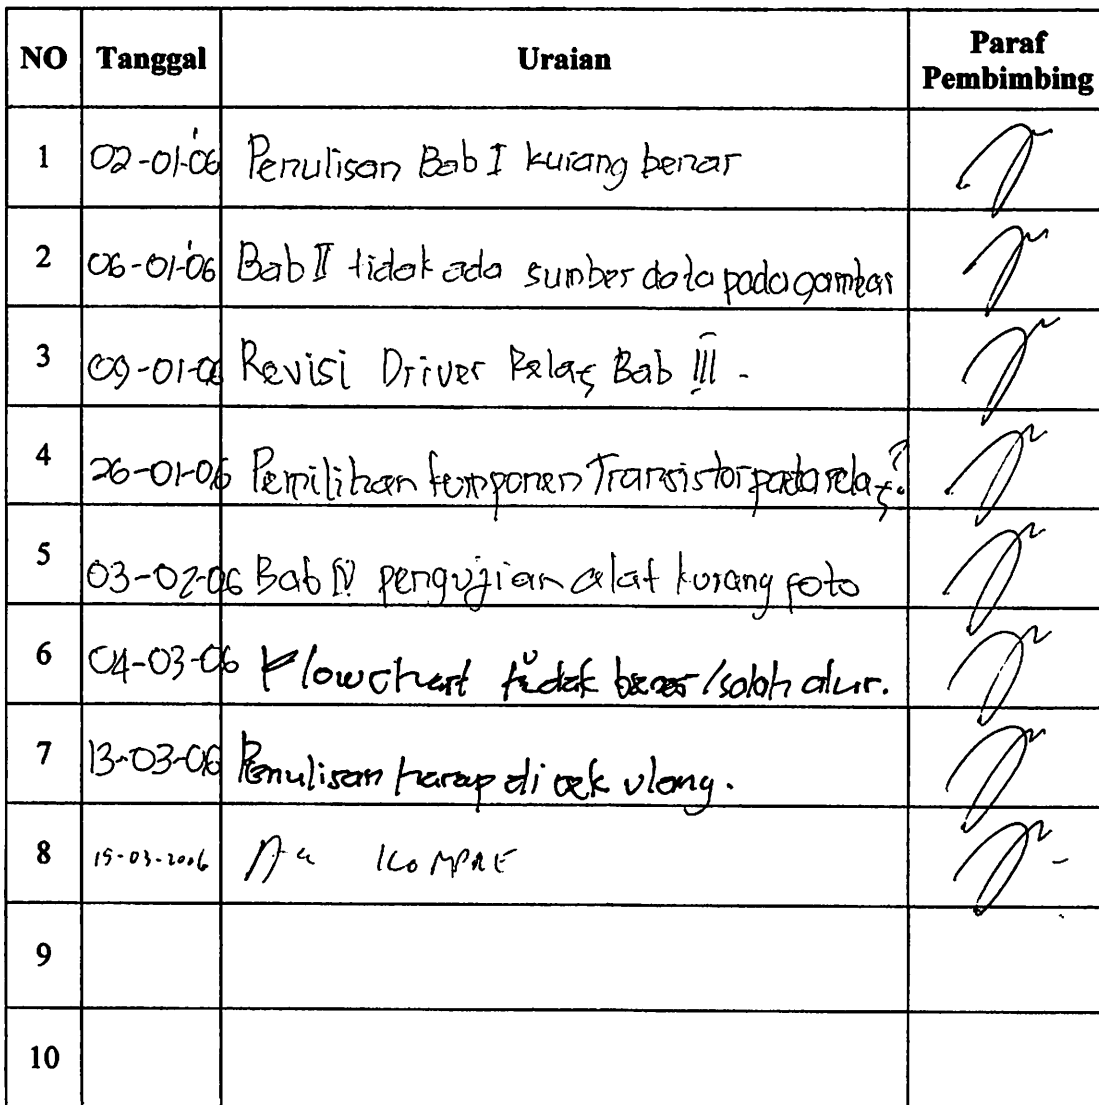 NO Tanggal Uraian Paraf Pembimbing
1 02-01-06 Penulisan Bab I kurang benar
2 06-01-06 Bab II tidak ada sumber data pada gambar
3 09-01-06 Revisi Driver Relay Bab III -
4 26-01-06 Pemilihan komponen Transistor pada relay?
5 03-02-06 Bab IV pengujian alat kurang foto
6 04-03-06 Flowchart tidak benar/salah alur.
7 13-03-06 Penulisan harap di cek ulang.
8 15-03-2006 KOMPRE
9
10